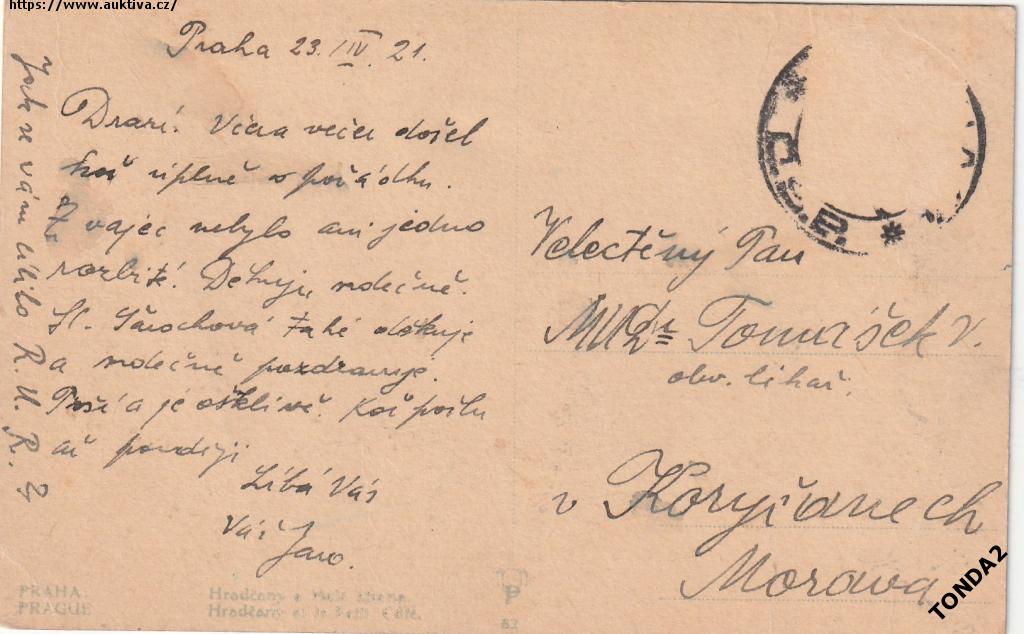 https://www.auktiva.cz/
Praha 23./IV. 21.
Drazí! Včera večer došel
koš úplně v pořádku.
Z vajec nebylo ani jedno
rozbité! Děkuji srdečně.
Sl. také děkuje
a srdečně pozdravuje.
Prší a je ošklivě. Koš pošlu
až později
Líbá Vás
Váš Jaro.
Jak se vám líbilo R. U. R. ?
Velectěný Pan
MUDr Tomášek V.
obv. lékař.
v Koryčanech
Morava
PRAHA:
PRAGUE
Hradčany a Malá strana.
Hradčany et le Petit Côté.
83
TONDA2